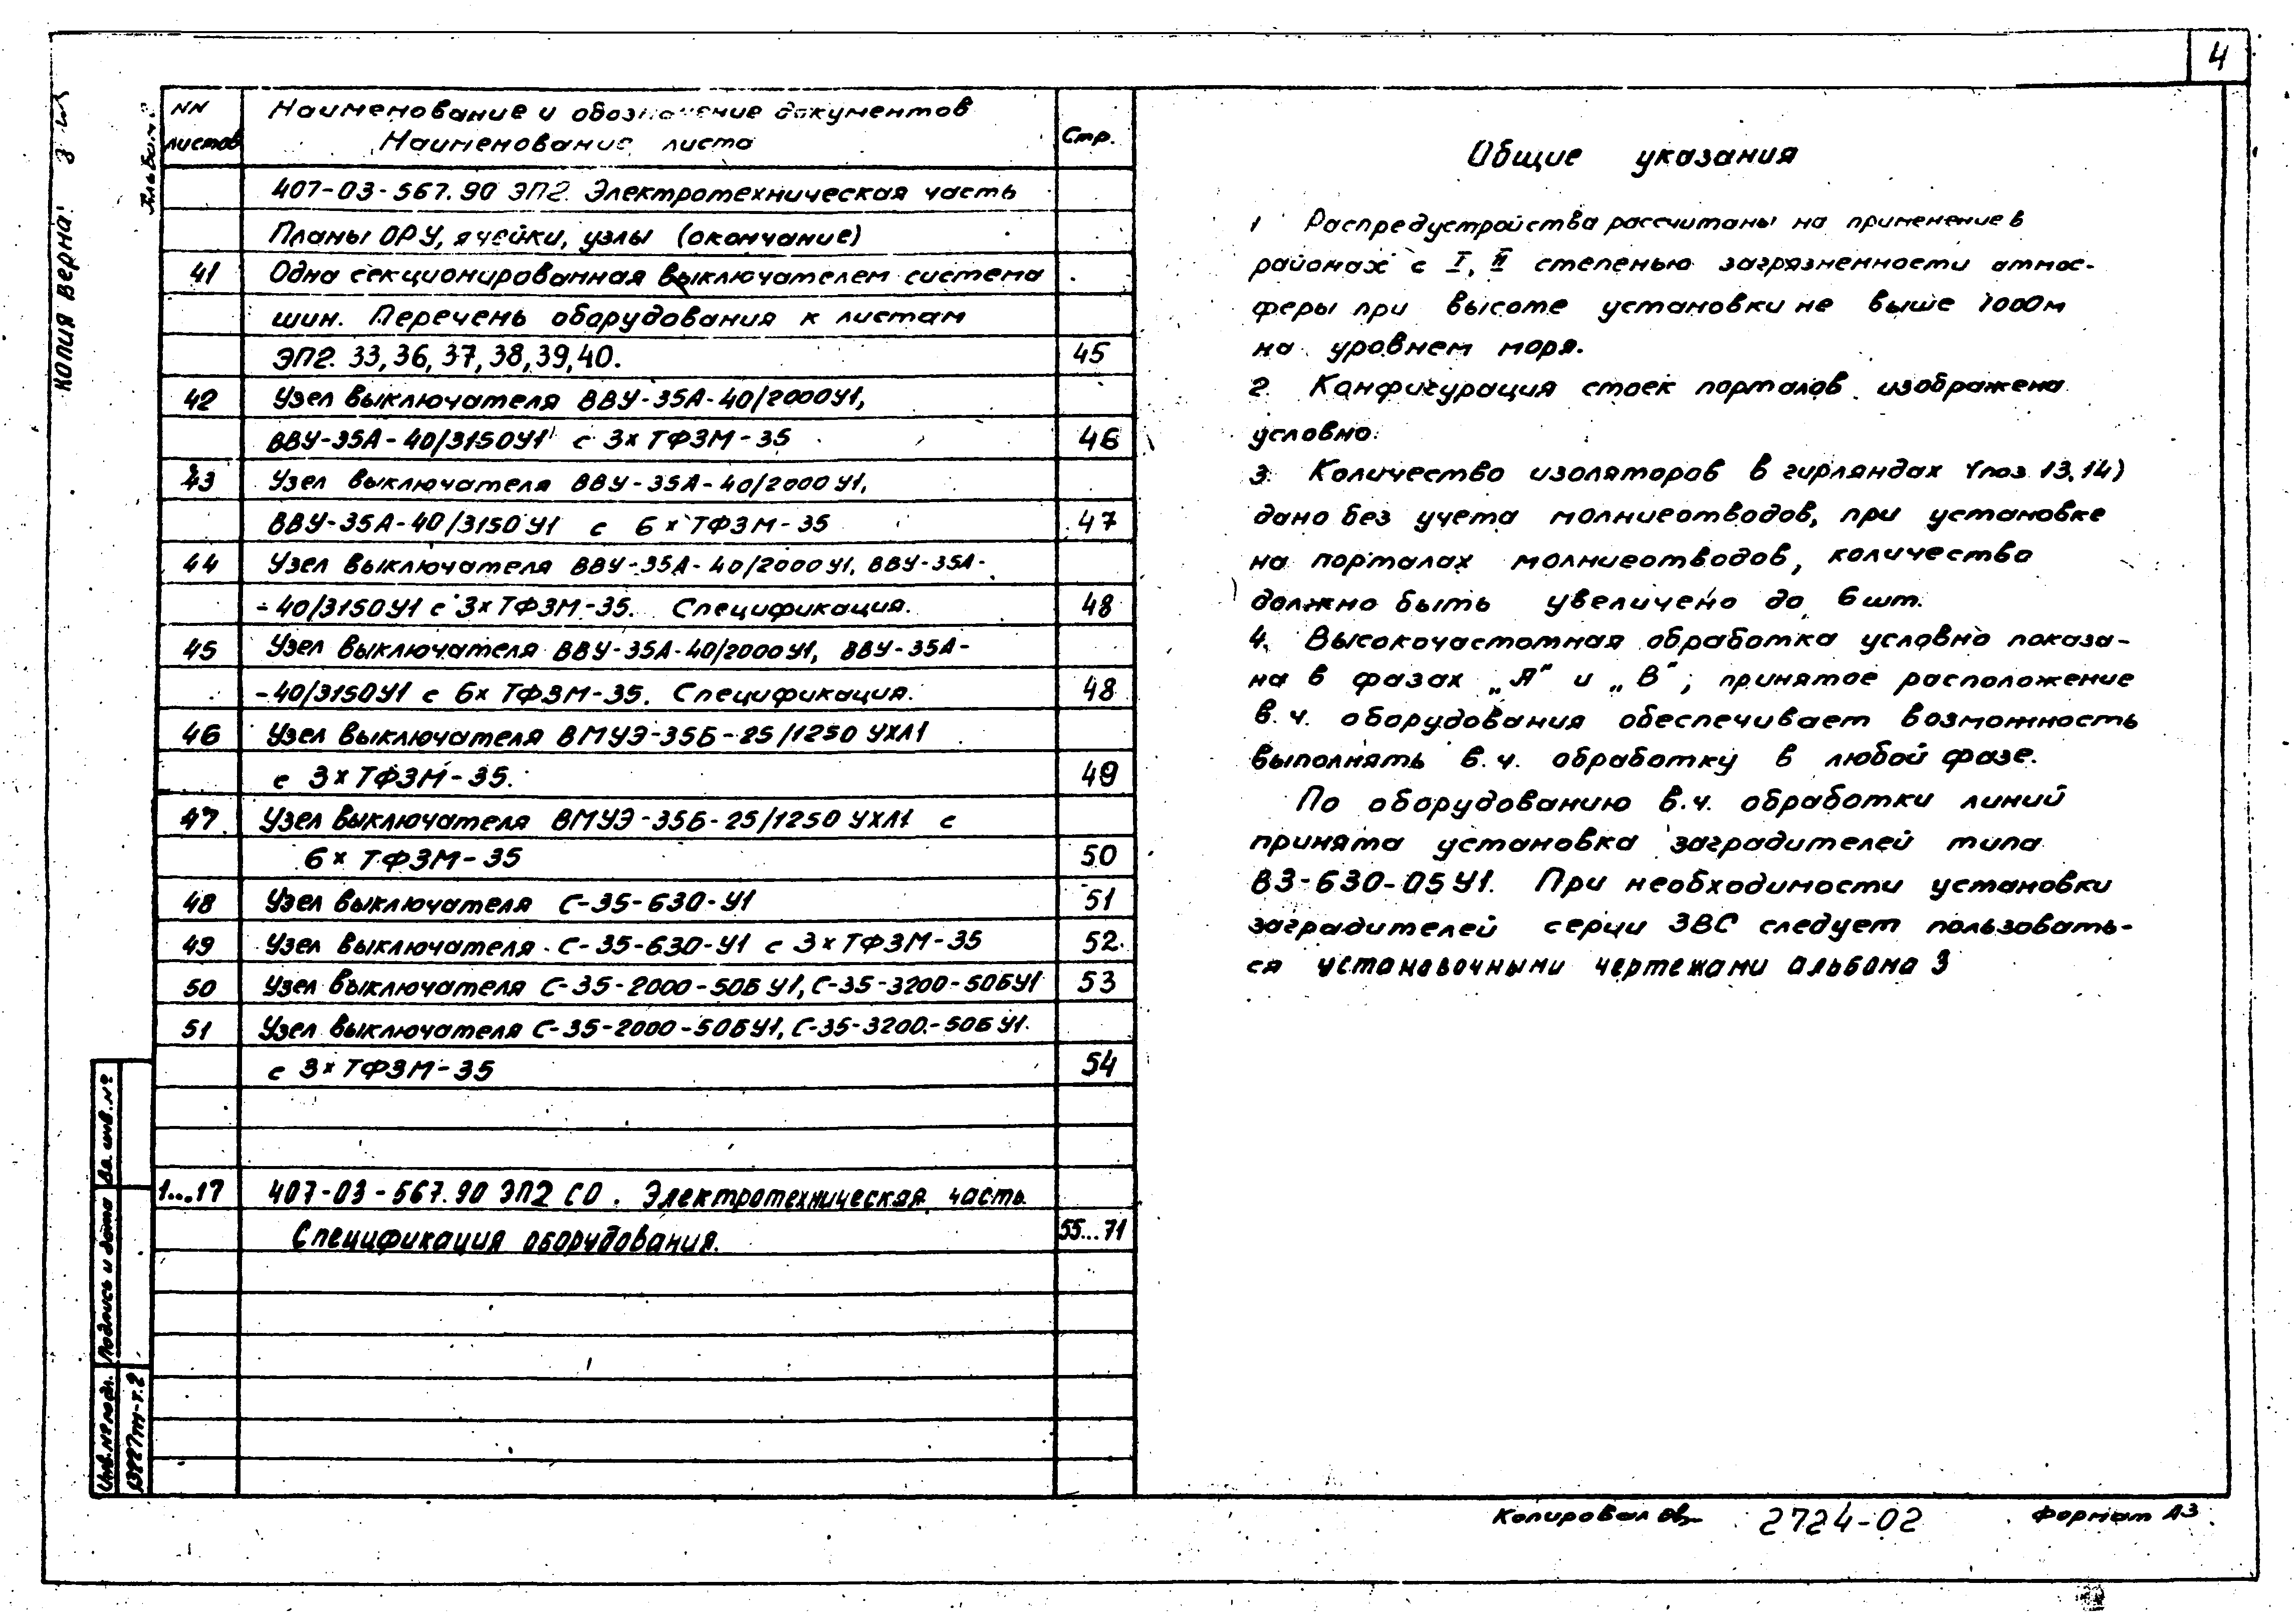 4
Копия верна:
Альбом 2
NN листов
Наименование и обозначение документов
Наименование листа
Стр.
407-03-567.90 ЭП2. Электротехническая часть
Планы ОРУ, ячейки, узлы (окончание)
41 Одна секционированная выключателем система
шин. Перечень оборудования к листам
ЭП2. 33, 36, 37, 38, 39, 40. 45
42 Узел выключателя ВВУ-35А-40/2000У1,
ВВУ-35А-40/3150У1 с 3х ТФЗМ-35 46
43 Узел выключателя ВВУ-35А-40/2000У1,
ВВУ-35А-40/3150У1 с 6х ТФЗМ-35 47
44 Узел выключателя ВВУ-35А-40/2000У1, ВВУ-35А-
-40/3150У1 с 3х ТФЗМ-35. Спецификация. 48
45 Узел выключателя ВВУ-35А-40/2000У1, ВВУ-35А-
-40/3150У1 с 6х ТФЗМ-35. Спецификация. 48
46 Узел выключателя ВМУЭ-35Б-25/1250 УХЛ1
с 3х ТФЗМ-35. 49
47 Узел выключателя ВМУЭ-35Б-25/1250 УХЛ1 с
6х ТФЗМ-35 50
48 Узел выключателя С-35-630-У1 51
49 Узел выключателя С-35-630-У1 с 3х ТФЗМ-35 52
50 Узел выключателя С-35-2000-50Б У1, С-35-3200-50БУ1 53
51 Узел выключателя С-35-2000-50БУ1, С-35-3200-50Б У1.
с 3х ТФЗМ-35 54
1...17 407-03-567.90 ЭП2 СО. Электротехническая часть
Спецификация оборудования. 55...71
Общие указания
1 Распредустройства рассчитаны на применение в
районах с I, II степенью загрязненности атмос-
феры при высоте установки не выше 1000м
на уровнем моря.
2. Конфигурация стоек порталов изображена
условно.
3. Количество изоляторов в гирляндах (поз 13,14)
дано без учета молниеотводов, при установке
на порталах молниеотводов, количество
должно быть увеличено до 6 шт.
4. Высокочастотная обработка условно показа-
на в фазах „А" и „В", принятое расположение
в.ч. оборудования обеспечивает возможность
выполнять в.ч. обработку в любой фазе.
По оборудованию в.ч. обработки линий
принята установка заградителей типа
ВЗ-630-05У1. При необходимости установки
заградителей серии ЗВС следует пользовать-
ся установочными чертежами альбома 3
Вз. инв. №
Подпись и дата
Инв. № подл.
Копировал
2724-02
Формат А3